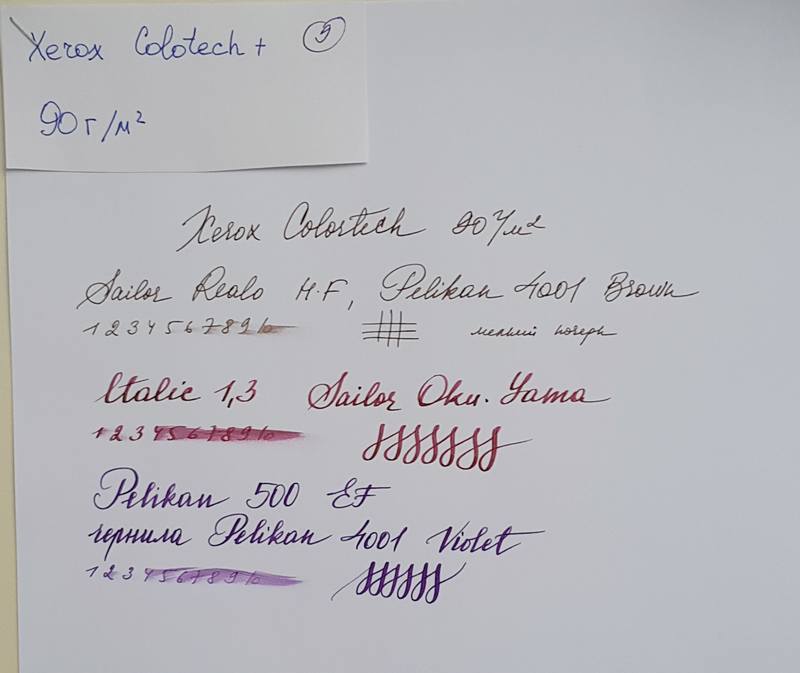 Xerox Colotech + 9
90 г/м²
Xerox Colortech 90 г/м²
Sailor Realo H-F, Pelikan 4001 Brown
1 2 3 4 5 6 7 8 9 10 мелкий почерк
Italic 1,3 Sailor Oku-Yama
1 2 3 4 5 6 7 8 9 10
Pelikan 500 EF
чернила Pelikan 4001 Violet
1 2 3 4 5 6 7 8 9 10